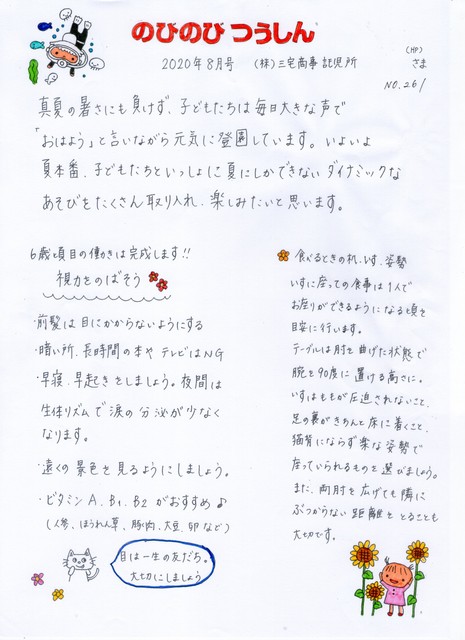 のびのび つうしん
2020年8月号 (株)三宅商事 託児所
(HP)
さま
NO.261
真夏の暑さにも負けず、子どもたちは毎日大きな声で
「おはよう」と言いながら元気に登園しています。いよいよ
夏本番、子どもたちといっしょに夏にしかできないダイナミックな
あそびをたくさん取り入れ、楽しみたいと思います。
6歳頃目の働きは完成します!!
視力をのばそう
・前髪は目にかからないようにする
・暗い所、長時間の本やテレビはNG
・早寝、早起きをしましょう。夜間は
生体リズムで涙の分泌が少なく
なります。
・遠くの景色を見るようにしましょう。
・ビタミンA、B1、B2がおすすめ♪
(人参、ほうれん草、豚肉、大豆、卵など)
目は一生の友だち。
大切にしましょう
食べるときの机、いす、姿勢
いすに座っての食事は1人で
お座りができるようになる頃を
目安に行います。
テーブルは肘を曲げた状態で
腕を90度に置ける高さに。
いすはももが圧迫されないこと、
足の裏がきちんと床に着くこと、
猫背にならず楽な姿勢で
座っていられるものを選びましょう。
また、両肘を広げても隣に
ぶつからない距離をとることも
大切です。